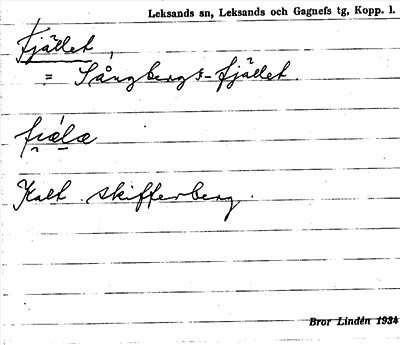 Leksands sn, Leksands och Gagnefs tg, Kopp. l.
Fjället,
= Långbergs-fjället.
fiæ̀læ
Kalt skifferberg.
Bror Lindén 1934